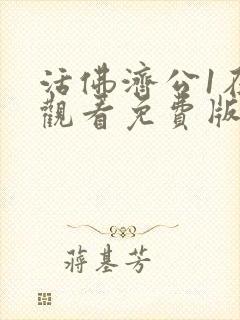 活佛濟公1在
觀看免費版
蔣基芳